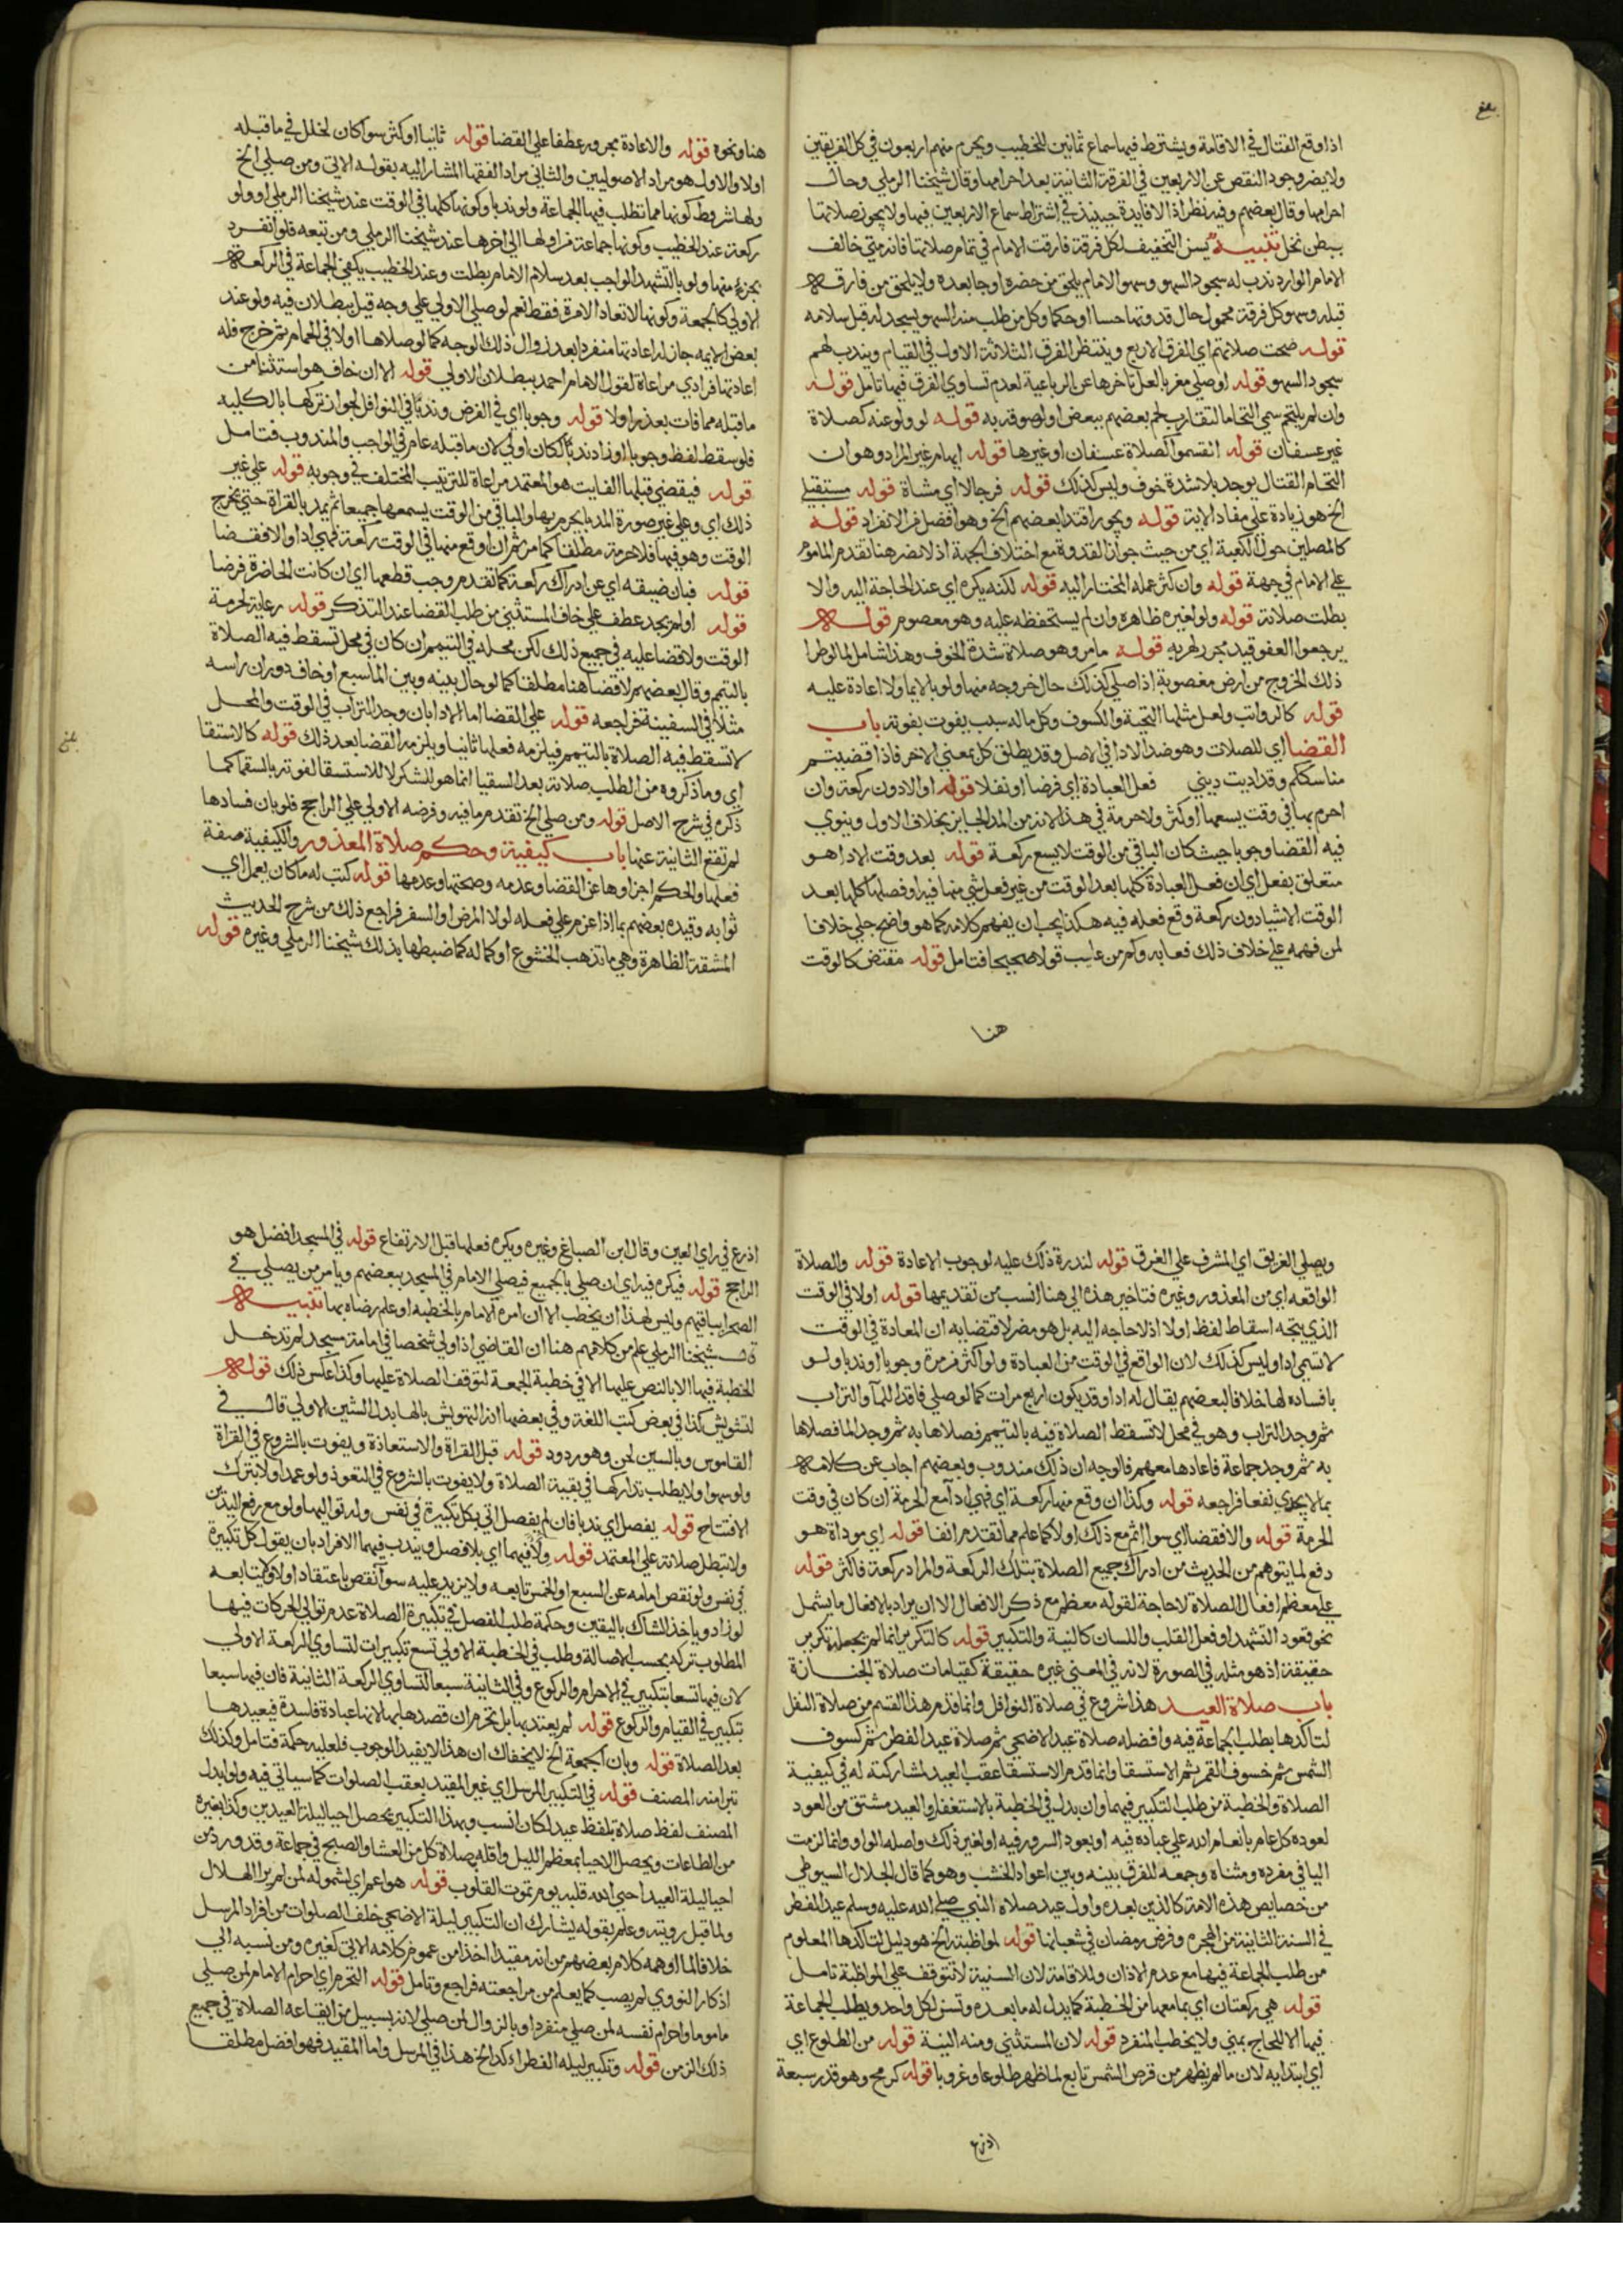 اذا وقع القتال في الاقامة ويشترط فيها سماع ثمانين للخطيب ويحرم منهم اربعون في كل الفريقين
ولا يضر وجود النقص عن الاربعين في الفرقة الثانية بعد احرامها وقال شيخنا الرملي وحال
احرامها وقال بعضهم وفيه نظر اذ لا فايدة حينيذ في اشتراط سماع الاربعين فيها ولا يجوز صلاتها
ببطن نخل تنبيه يسن التخفيف لكل فرقة فارقت الامام في تمام صلاتها فانه متي خالف
الامام الوارد ندب له سجود السهو وسهو الامام يلحق من حضره او جا بعده ولا يلحق من فارقه
قبله وسهو كل فرقة محمول حال قدوتها حسا او حكما وكل من طلب منه السهو يسجد له قبل سلامه
قوله صحت صلاتهم اي الفرق الاربع وينتظر الفرق الثلاثة الاول في القيام ويندب لهم
سجود السهو قوله او صلي مغربا لعل تاخرها عن الرباعية لعدم تساوي الفرق فيها تامل قوله
وان لم يلتحم سمي التحاما لتقارب لحم بعضهم ببعض او لصوقه به قوله لو ولوعنه كصلاة
غير عسفان قوله انقسموا كصلاة عسفان او غيرها قوله ايهام غير المراد وهو ان
التحام القتال يوجد بلا شدة خوف وليس كذلك قوله فرجالا اي مشاة قوله مستقبلي
الخ هو زيادة علي مفاد الاية قوله ويجوز اقتدا بعضهم الخ وهو افضل من الانفراد قوله
كالمصلين حول الكعبة اي من حيث جواز القدوة مع اختلاف الجهة اذ لا يضر هنا تقدم الماموم
علي الامام في جهة قوله وان كثر عمله المحتاج اليه قوله لكنه يكره اي عند الحاجة اليه والا
بطلت صلاته قوله ولو لغيره ظاهره وان لم يستحفظه عليه وهو معصوم قوله
يرجعوا العفو قيد مجرد لهربه قوله ما مر وهو صلاة شدة الخوف وهذا شامل لما لو طرا
ذلك الخروج من ارض مغصوبة اذا صلي كذلك حال خروجه منها ولو بالايما ولا اعادة عليه
قوله كالرواتب ولعل مثلها التحية والكسوف وكل ما له سبب يفوت بفوته باب
القضا اي للصلات وهو ضد الادا في الاصل وقد يطلق كل بمعني الاخر فاذا قضيتم
مناسككم وقد اديت ديني فعل العبادة اي فرضا او نفلا قوله او الا دون ركعة وان
احرم بها في وقت يسعها او كثر ولا حرمة في هذا لانه من المد الجايز بخلاف الاول وينوي
فيه القضا وجوبا حيث كان الباقي من الوقت لا يسع ركعة قوله بعد وقت الادا هو
متعلق بفعل اي ان فعل العبادة كلها بعد الوقت من غير فعل شي منها فيه او فصلها كلها بعد
الوقت الا شيا دون ركعة وقع فعله فيه هكذا يجب ان يفهم كلامه كما هو واضح جلي خلافا
لمن فهمه علي خلاف ذلك فعابه وكم من عايب قولا صحيحا فتامل قوله مقتض كالوقت
هنا
هنا ونحوه قوله والاعادة مجرور عطفا علي القضا قوله ثانيا او كثر سوا كان لخلل في ما قبله
اولا والاول هو مراد الاصوليين والثاني مراد الفقها المشار اليه بقوله الاتي ومن صلي الخ
ولها شروط كونها مما تطلب فيها الجماعة ولو ندبا وكونها كلها في الوقت عند شيخنا الرملي او ولو
ركعة عند الخطيب وكونها جماعة من اولها الي اخرها عند شيخنا الرملي ومن تبعه فلو انفرد
بجزء منها ولو بالتشهد الواجب بعد سلام الامام بطلت وعند الخطيب يكفي الجماعة في الركعة
الاولي كالجمعة وكونها لا تعاد الا مرة فقط نعم لو صلي الاولي علي وجه قيل ببطلان فيه ولو عند
بعض الايمه جاز له اعادتها منفردا بعد زوال ذلك الوجه كما لو صلاها اولا في الحمام ثم خرج فله
اعادتها فرادي مراعاة لقول الامام احمد ببطلان الاولي قوله الا ان خاف هو استثنا من
ما قبله مما فات بعذر او لا قوله وجوبا اي في الفرض وندبا في النوافل لجواز تركها بالكليه
فلو سقط لفظ وجوبا او زاد ندبا لكان اولي لان ما قبله عام في الواجب والمندوب فتامل
قوله فيقضي قبلها الفايت هو المعتمد مراعاة للترتيب المختلف في وجوبه قوله علي غير
ذلك اي وعلي غير صورة المد بان يحرم بها والباقي من الوقت يسعها جميعا ثم يمد بالقراة حتي يخرج
الوقت وهو فيها فلا حرمة مطلقا كما مر ثم ان اوقع منها في الوقت ركعة فهي ادا والا فقضا
قوله فبان ضيقه اي عن ادراك ركعة كما تقدم وجب قطعها اي ان كانت الحاضرة فرضا
قوله او لم يجد عطف علي خاف المستثني من طلب القضا عند التذكر قوله رعاية لحرمة
الوقت ولا قضا عليه في جميع ذلك لكن محله في التيمم ان كان في محل تسقط فيه الصلاة
بالتيمم وقال بعضهم لا قضا هنا مطلقا كما لو حال بينه وبين الما سبع او خاف دوران راسه
مثلا في السفينة فراجعه قوله علي القضا اما الادا بان وجد التراب في الوقت والمحل
لا تسقط فيه الصلاة بالتيمم فيلزمه فعلها ثانيا ويلزمه القضا بعد ذلك قوله كالاستسقا
اي وما ذكروه من الطلب صلاته بعد السقيا انما هو للشكر لا للاستسقا لفوته بالسقيا كما
ذكره في شرح الاصل قوله ومن صلي الخ تقدم ما فيه وفرضه الاولي علي الراجح فلو بان فسادها
لم تقع الثانية عنها باب كيفية وحكم صلاة المعذور والكيفية صفة
فعلها والحكم اجزاوها عن القضا وعدمه وصحتها وعدمها قوله كتب له ما كان يعمل اي
ثوابه وقيده بعضهم بما اذا عزم علي فعله لولا المرض او السفر فراجع ذلك من شرح الحديث
المشقة الظاهرة وهي ما تذهب الخشوع او كماله كما ضبطها بذلك شيخنا الرملي وغيره قوله
ويصلي الغريق اي المشرف علي الغرق قوله لندرة ذلك عليه لوجوب الاعادة قوله والصلاة
الواقعه اي من المعذور وغيره فتاخير هذه الي هنا انسب من تقديمها قوله اولا في الوقت
الذي يتجه اسقاط لفظ اولا اذ لا حاجه اليه بل هو مضر لاقتضايه ان المعادة في الوقت
لا تسمي ادا وليس كذلك لان الواقع في الوقت من العبادة ولو اكثر من مرة وجوبا او ندبا ولو
بافساده لها خلافا لبعضهم يقال له ادا وقد يكون اربع مرات كما لو صلي فاقد المآ والتراب
ثم وجد التراب وهو في محل لا تسقط الصلاة فيه بالتيمم فصلاها به ثم وجد الما فصلاها
به ثم وجد جماعة فاعادها معهم فالوجه ان ذلك مندوب وبعضهم اجاب عن كلامه
بما لا يجدي نفعا فراجعه قوله وكذا ان وقع منها ركعة اي فهي ادآ مع الحرمة ان كان في وقت
الحرمة قوله والا فقضا اي سوا اثم مع ذلك او لا كما علم مما تقدم انفا قوله اي موداة هو
دفع لما يتوهم من الحديث من ادراك جميع الصلاة بتلك الركعة والمراد ركعة فاكثر قوله
علي معظم افعال الصلاة لا حاجة لقوله معظم مع ذكر الافعال الا ان يراد بالافعال ما يشمل
نحو قعود التشهد او فعل القلب واللسان كالنية والتكبير قوله كالتكرير انما لم يجعله تكرير
حقيقة اذ هو مثله في الصورة لانه في المعني غيره حقيقة كقيامات صلاة الجنازة
باب صلاة العيد هذا شروع في صلاة النوافل وانما قدم هذا القسم من صلاة النفل
لتاكدها بطلب الجماعة فيه وافضله صلاة عيد الاضحي ثم صلاة عيد الفطر ثم كسوف
الشمس ثم خسوف القمر ثم الاستسقا وانما قدم الاستسقا عقب العيد لمشاركته له في كيفية
الصلاة والخطبة من طلب التكبير فيهما وان بدل في الخطبة بالاستغفار والعيد مشتق من العود
لعوده كل عام بانعام الله علي عباده فيه او بعود السرور فيه او لغير ذلك واصله الواو وانما لزمت
اليا في مفرده ومثناه وجمعه للفرق بينه وبين اعواد الخشب وهو كما قال الجلال السيوطي
من خصايص هذه الامة كالذين بعده واول عيد صلاه النبي صلي الله عليه وسلم عيد الفطر
في السنة الثانية من الهجره وفرض رمضان في شعبانها قوله لمواظبته الخ هو دليل لتاكدها المعلوم
من طلب الجماعة فيها مع عدم الاذان والاقامة لان السنية لا تتوقف علي المواظبة تامل
قوله هي ركعتان اي بما معها من الخطبة كما يدل له ما بعده وتسن لكل واحد ويطلب الجماعة
فيها الا للحاج بمني ولا يخطب المنفرد قوله لان المستثني ومنه النية قوله من الطلوع اي
اي ابتدايه لان ما لم يظهر من قرص الشمس تابع لما ظهر طلوعا وغروبا قوله كرمح وهو قدر سبعة
اذرع
اذرع في راي العين وقال ابن الصباغ وغيره ويكره فعلها قبل الارتفاع قوله في المسجد افضل هو
الراجح قوله فيكره فيه اي ان صلي بالجميع فيصلي الامام في المسجد ببعضهم ويامر من يصلي في
الصحرا بباقيهم وليس لهذا ان يخطب الا ان امره الامام بالخطبه او علم رضاه بها تنبيه
قال شيخنا الرملي علم من كلامهم هنا ان القاضي اذا ولي شخصا في امامة مسجد لم تدخل
الخطبة فيها الا بالنص عليها الا في خطبة الجمعة لتوقف الصلاة عليها وكذا عكس ذلك قوله
لتشويش كذا في بعض كتب اللغة وفي بعضها انه التهويش بالها بدل الشين الاولي قال في
القاموس وبالسين لحن وهو مردود قوله قبل القراة والاستعاذة ويفوت بالشروع في القراة
ولو سهوا ولا يطلب تداركها في بقية الصلاة ولا يفوت بالشروع في التعوذ ولو عمدا ولا بترك
الافتتاح قوله يفصل اي ندبا فان لم يفصل اتي بكل تكبيرة في نفس وله تواليها ولو مع رفع اليدين
ولا تبطل صلاته علي المعتمد قوله ولا فيهما اي بلا فصل ويندب فيهما الافراد بان يقول كل تكبيرة
في نفس ولو نقص امامه عن السبع او الخمس تابعه ولا يزيد عليه سوآ نقص باعتقاد او لا ولا يتابعه
لو زاد وياخذ الشاك باليقين وحكمة طلب الفصل في تكبيرة الصلاة عدم توالي الحركات فيها
المطلوب تركه بحسب الاصالة وطلب في الخطبة الاولي تسع تكبيرات لتساوي الركعة الاولي
لان فيها تسعا بتكبير في الاحرام والركوع وفي الثانية سبعا لتساوي الركعة الثانية فان فيها سبعا
بتكبير في القيام والركوع قوله لم يعتد بها بل تحرم ان قصدها بها لانها عبادة فاسدة فيعيدها
بعد الصلاة قوله وبان الجمعة الخ لا يخفاك ان هذا لا يفيد الوجوب فلعليه حكمة فتامل وكذلك
تبرا منه المصنف قوله في التكبير المرسل اي غير المقيد بعقب الصلوات كما سياتي فيه ولو ابدل
المصنف لفظ صلاة بلفظ عيد لكان انسب وبهذا التكبير يحصل احيا ليلة العيدين وكذا بغيره
من الطاعات ويحصل الاحيا بمعظم الليل واقله صلاة كل من العشا والصبح في جماعة وقد ورد من
احيا ليلة العيد احيي الله قلبه يوم تموت القلوب قوله هو اعم اي لشموله لمن لم ير الهلال
ولما قبل رويته وعلم بقوله يشارك ان التكبير ليلة الاضحي خلف الصلوات من افراد المرسل
خلافا لما اوهمه كلام بعضهم من انه مقيد اخذا من عموم كلامه الاتي كغيره ومن نسبه الي
اذكار النووي لم يصب كما يعلم من مراجعته فراجع وتامل قوله التحرم اي احرام الامام لمن صلي
ماموما واحرام نفسه لمن صلي منفردا وبالزوال لمن صلي لانه بسبيل من ايقاعه الصلاة في جميع
ذلك الزمن قوله وتكبير ليله الفطر اكد الخ هذا في المرسل واما المقيد فهو افضل مطلقا